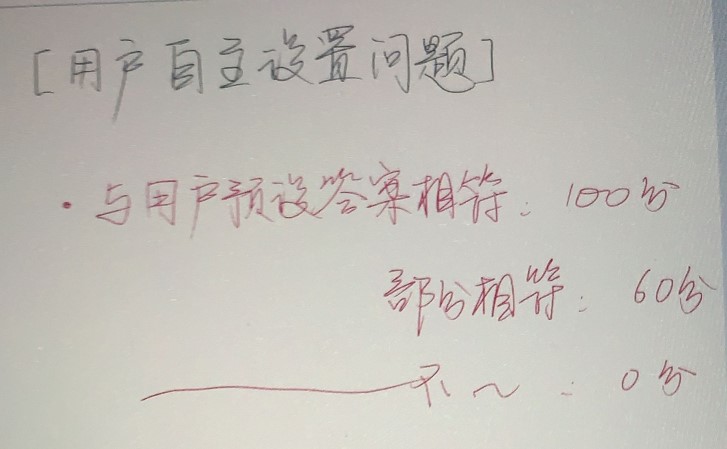 [用户自主设置问题]
·与用户预设答案相符：100分
部分相符：60分
不～：0分